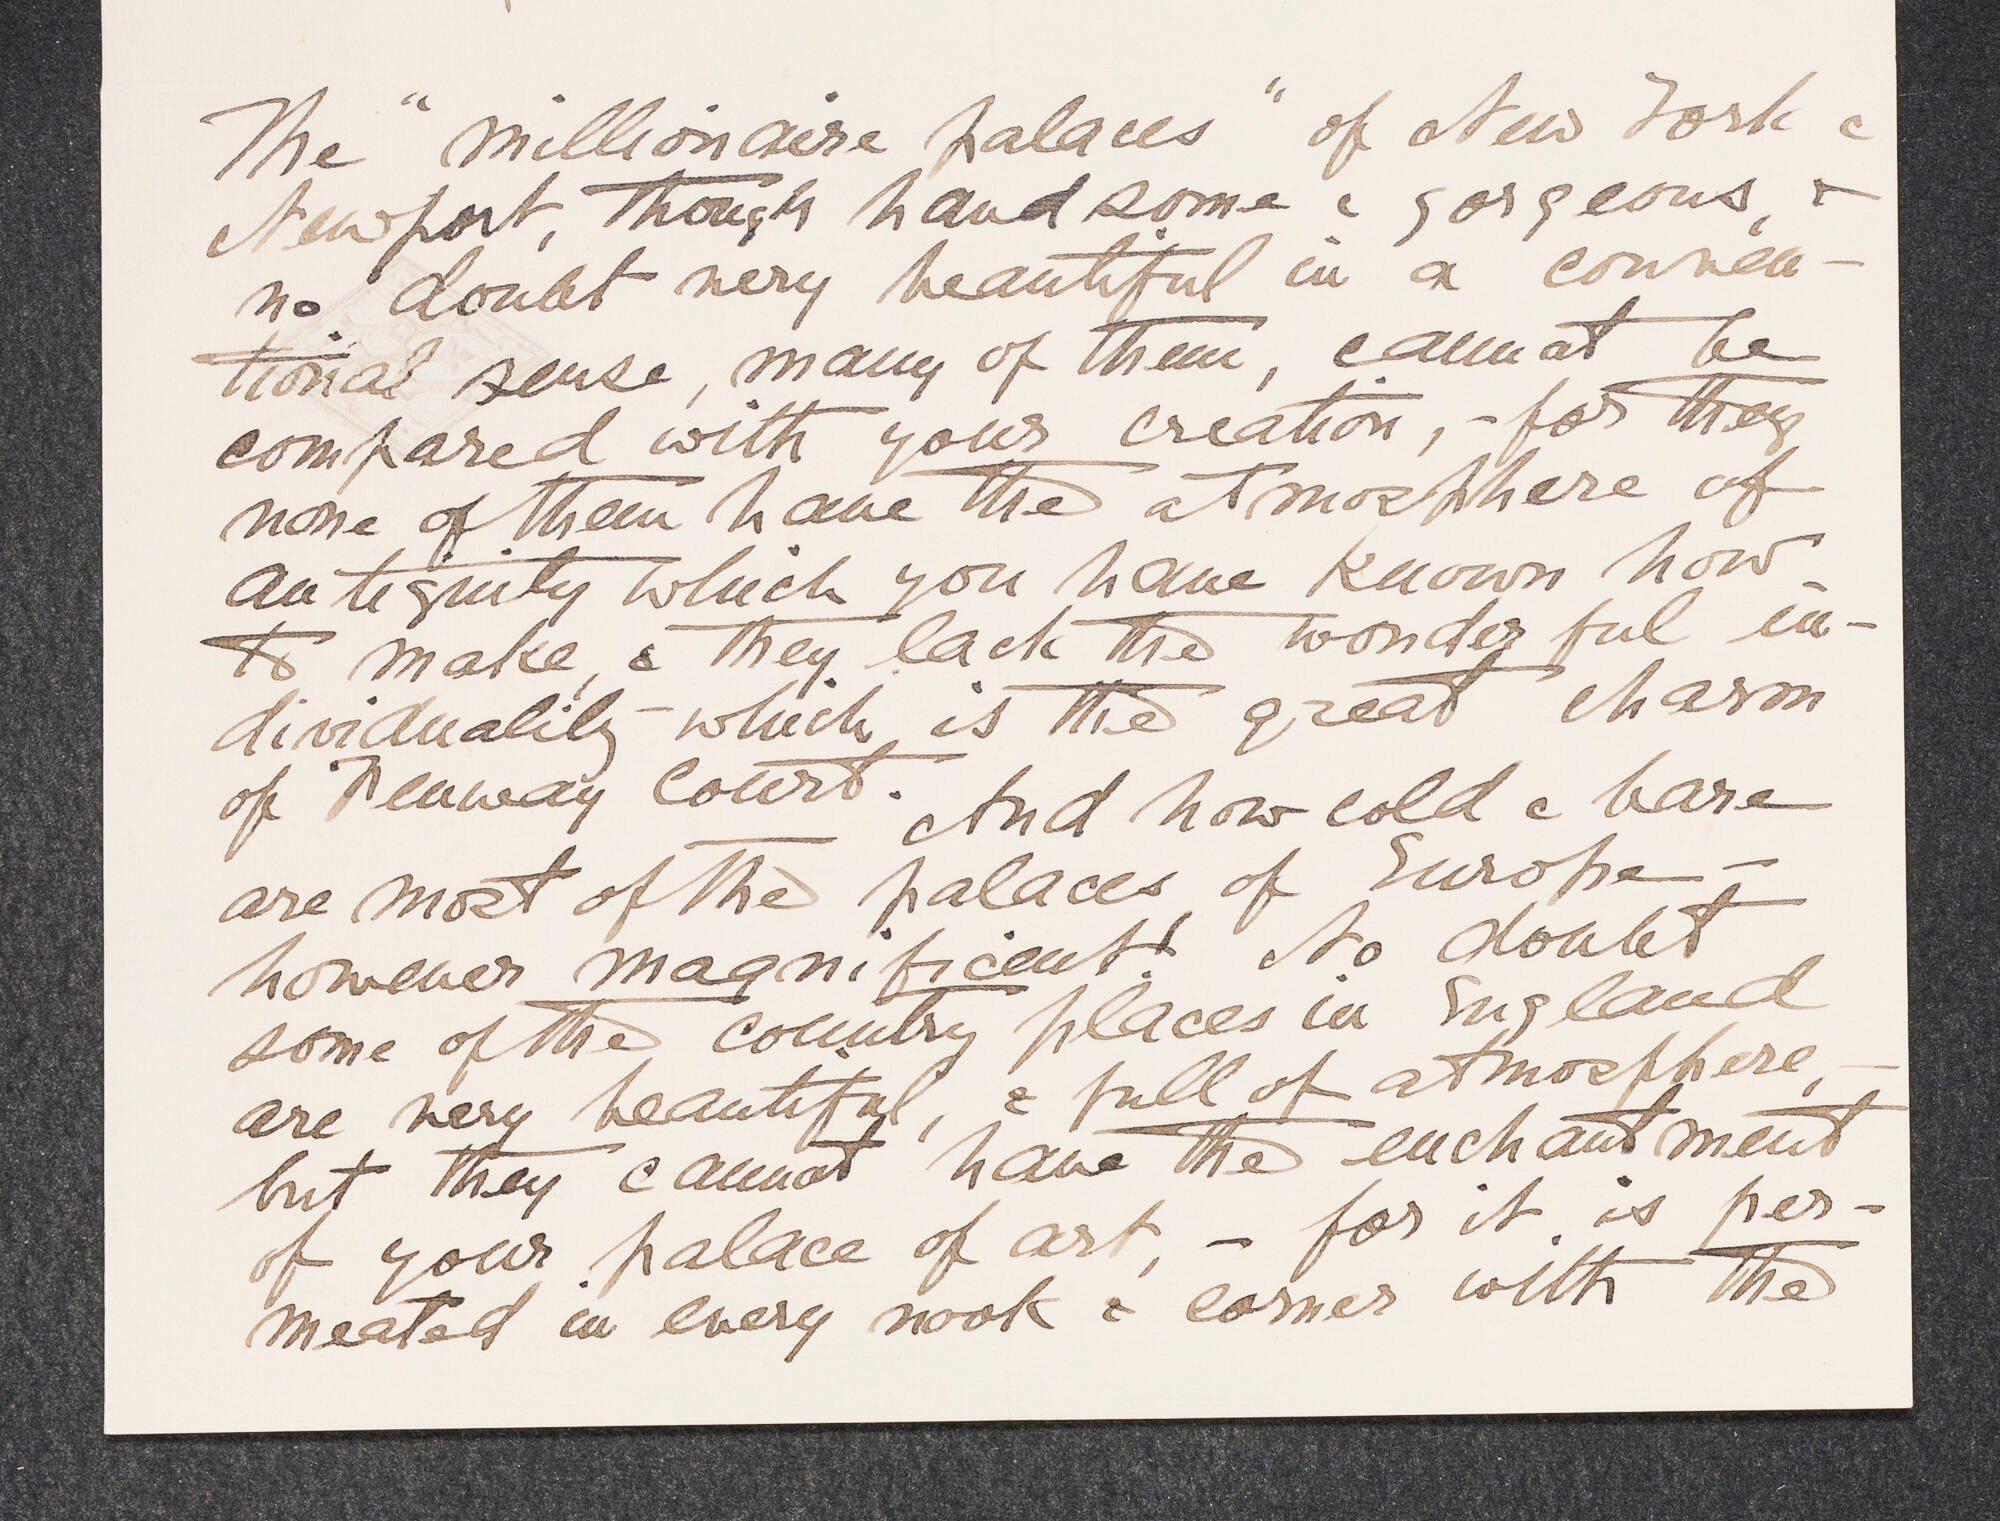 The "millionaire palaces" of New York &
Newport, though handsome & gorgeous, &
no doubt very beautiful in a conven-
tional sense, many of them, cannot be
compared with your creation, - for they
none of them have the atmosphere of
antiquity which you have known how
to make, & they lack the wonderful in-
dividuality - which is the great charm
of Fenway Court. And how cold & bare
are most of the palaces of Europe -
however magnificent! No doubt
some of the country places in England
are very beautiful, & full of atmosphere, -
but they cannot have the enchantment
of your palace of art, - for it is per-
meated in every nook & corner with the